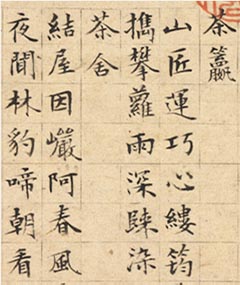 茶籯
山匠運巧心縷筠
擕攀蘿雨深歸染
茶舍
結屋因巗阿春風
夜聞林豹啼朝看